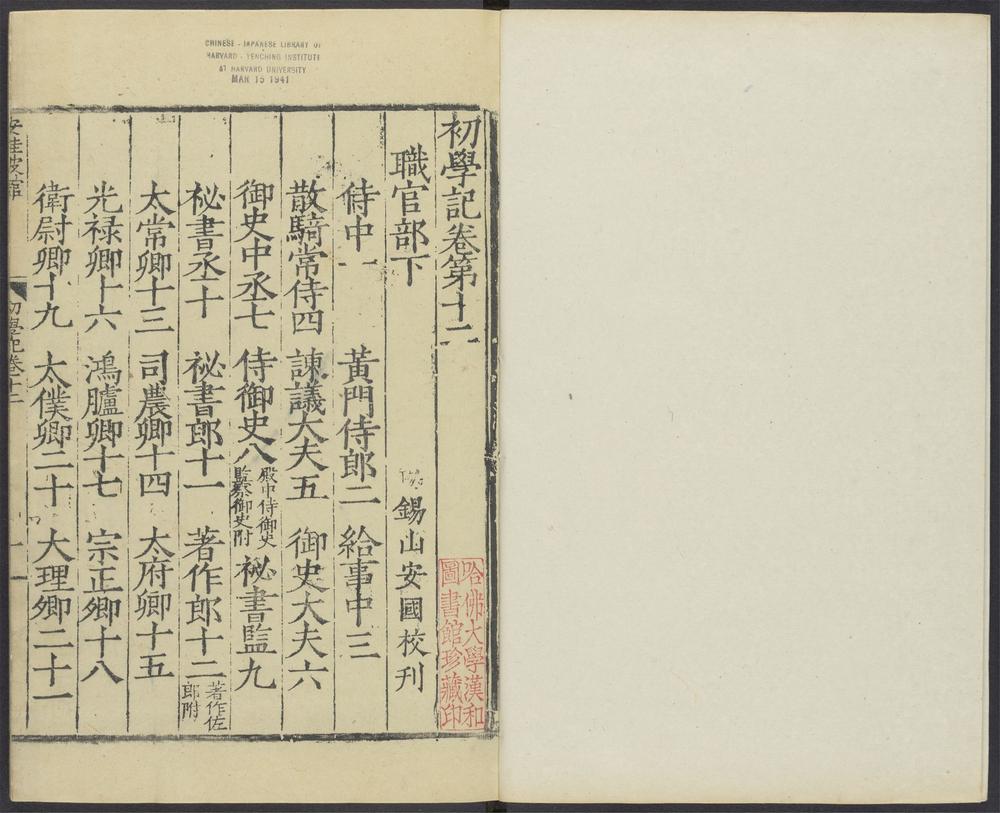 CHINESE - JAPANESE LIBRARY OF
HARVARD - YENCHING INSTITUTE
AT HARVARD UNIVERSITY
MAR 15 1941
初學記卷第十二
職官部下
錫山安國校刊
侍中一　黃門侍郎二　給事中三
散騎常侍四　諫議大夫五　御史大夫六
御史中丞七　侍御史八殿中侍御史監察御史附　秘書監九
秘書丞十　秘書郎十一　著作郎十二著作佐郎附
太常卿十三　司農卿十四　太府卿十五
光禄卿十六　鴻臚卿十七　宗正卿十八
衛尉卿十九　太僕卿二十　大理卿二十一
安桂坡館　初學記卷十二　一
哈佛大學漢和
圖書館珍藏印